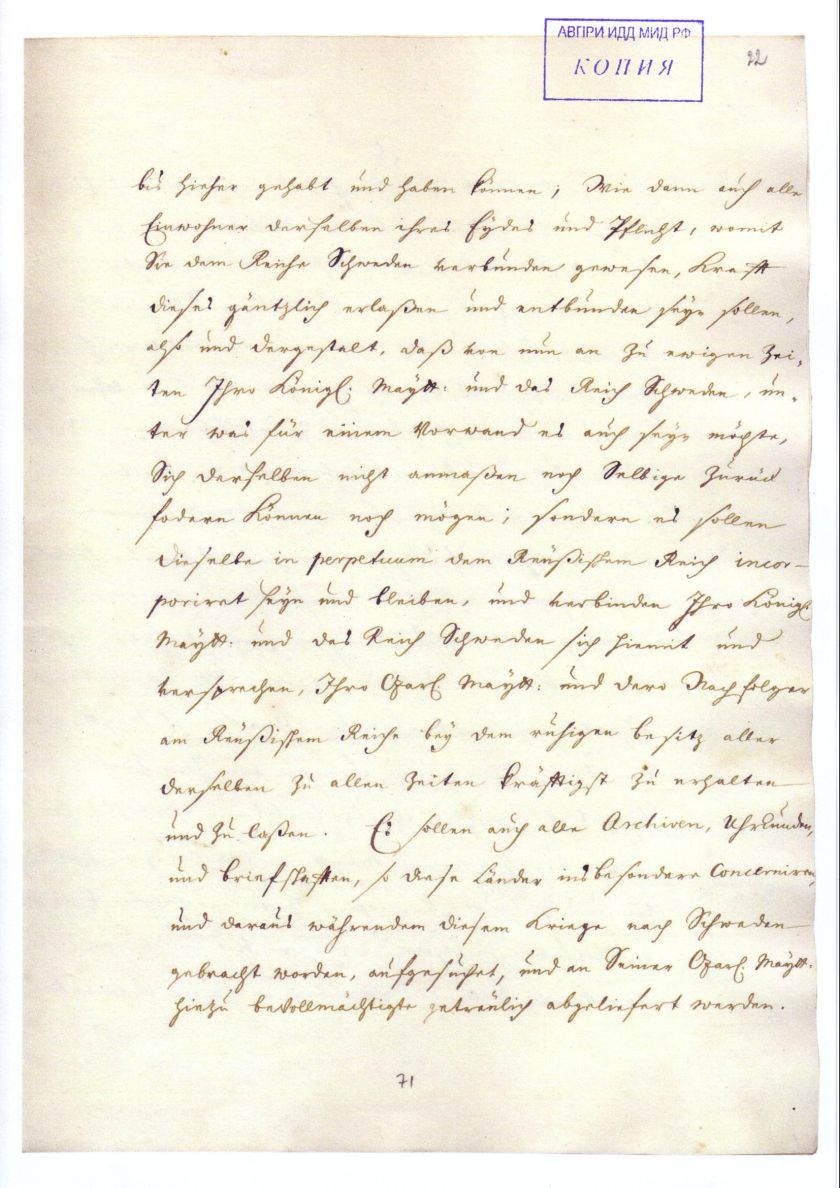 АВПРИ ИДД МИД РФ
КОПИЯ
22
bis hieher gehabt und haben können; Wie dann auch alle
Einwohner derselben ihres Eydes und Pflicht, womit
Sie dem Reiche Schweden verbunden gewesen, Krafft
dieses gäntzlich erlaßen und entbunden seyn sollen,
also und dergestalt, daß von nun an zu ewigen Zei-
ten Ihro Königl. Maytt: und das Reich Schweden, un-
ter was für einem Vorwand es auch seyn möchte,
Sich derselben nicht anmaßen noch Selbige zurück
fodern Können noch mögen; sondern es sollen
Dieselbe in perpetuum dem Reüßischem Reich incor-
poriret seyn und bleiben, und verbinden Ihro Königl.
Maytt: und das Reich Schweden sich hiemit und
versprechen, Ihro Czarl. Maytt: und dero Nachfolger
am Reüßischem Reiche bey dem ruhigen besitz aller
derselben zu allen Zeiten kräfftigst zu erhalten
und zu laßen. Es sollen auch alle Archiven, Uhrkunden,
und briefschafften, so diese Länder insbesondere concerniren,
und daraus währendem diesem Kriege nach Schweden
gebracht worden, aufgesuchet, und an Seiner Czarl. Maytt:
hiezu bevollmächtigte getreulich abgeliefert werden.
71